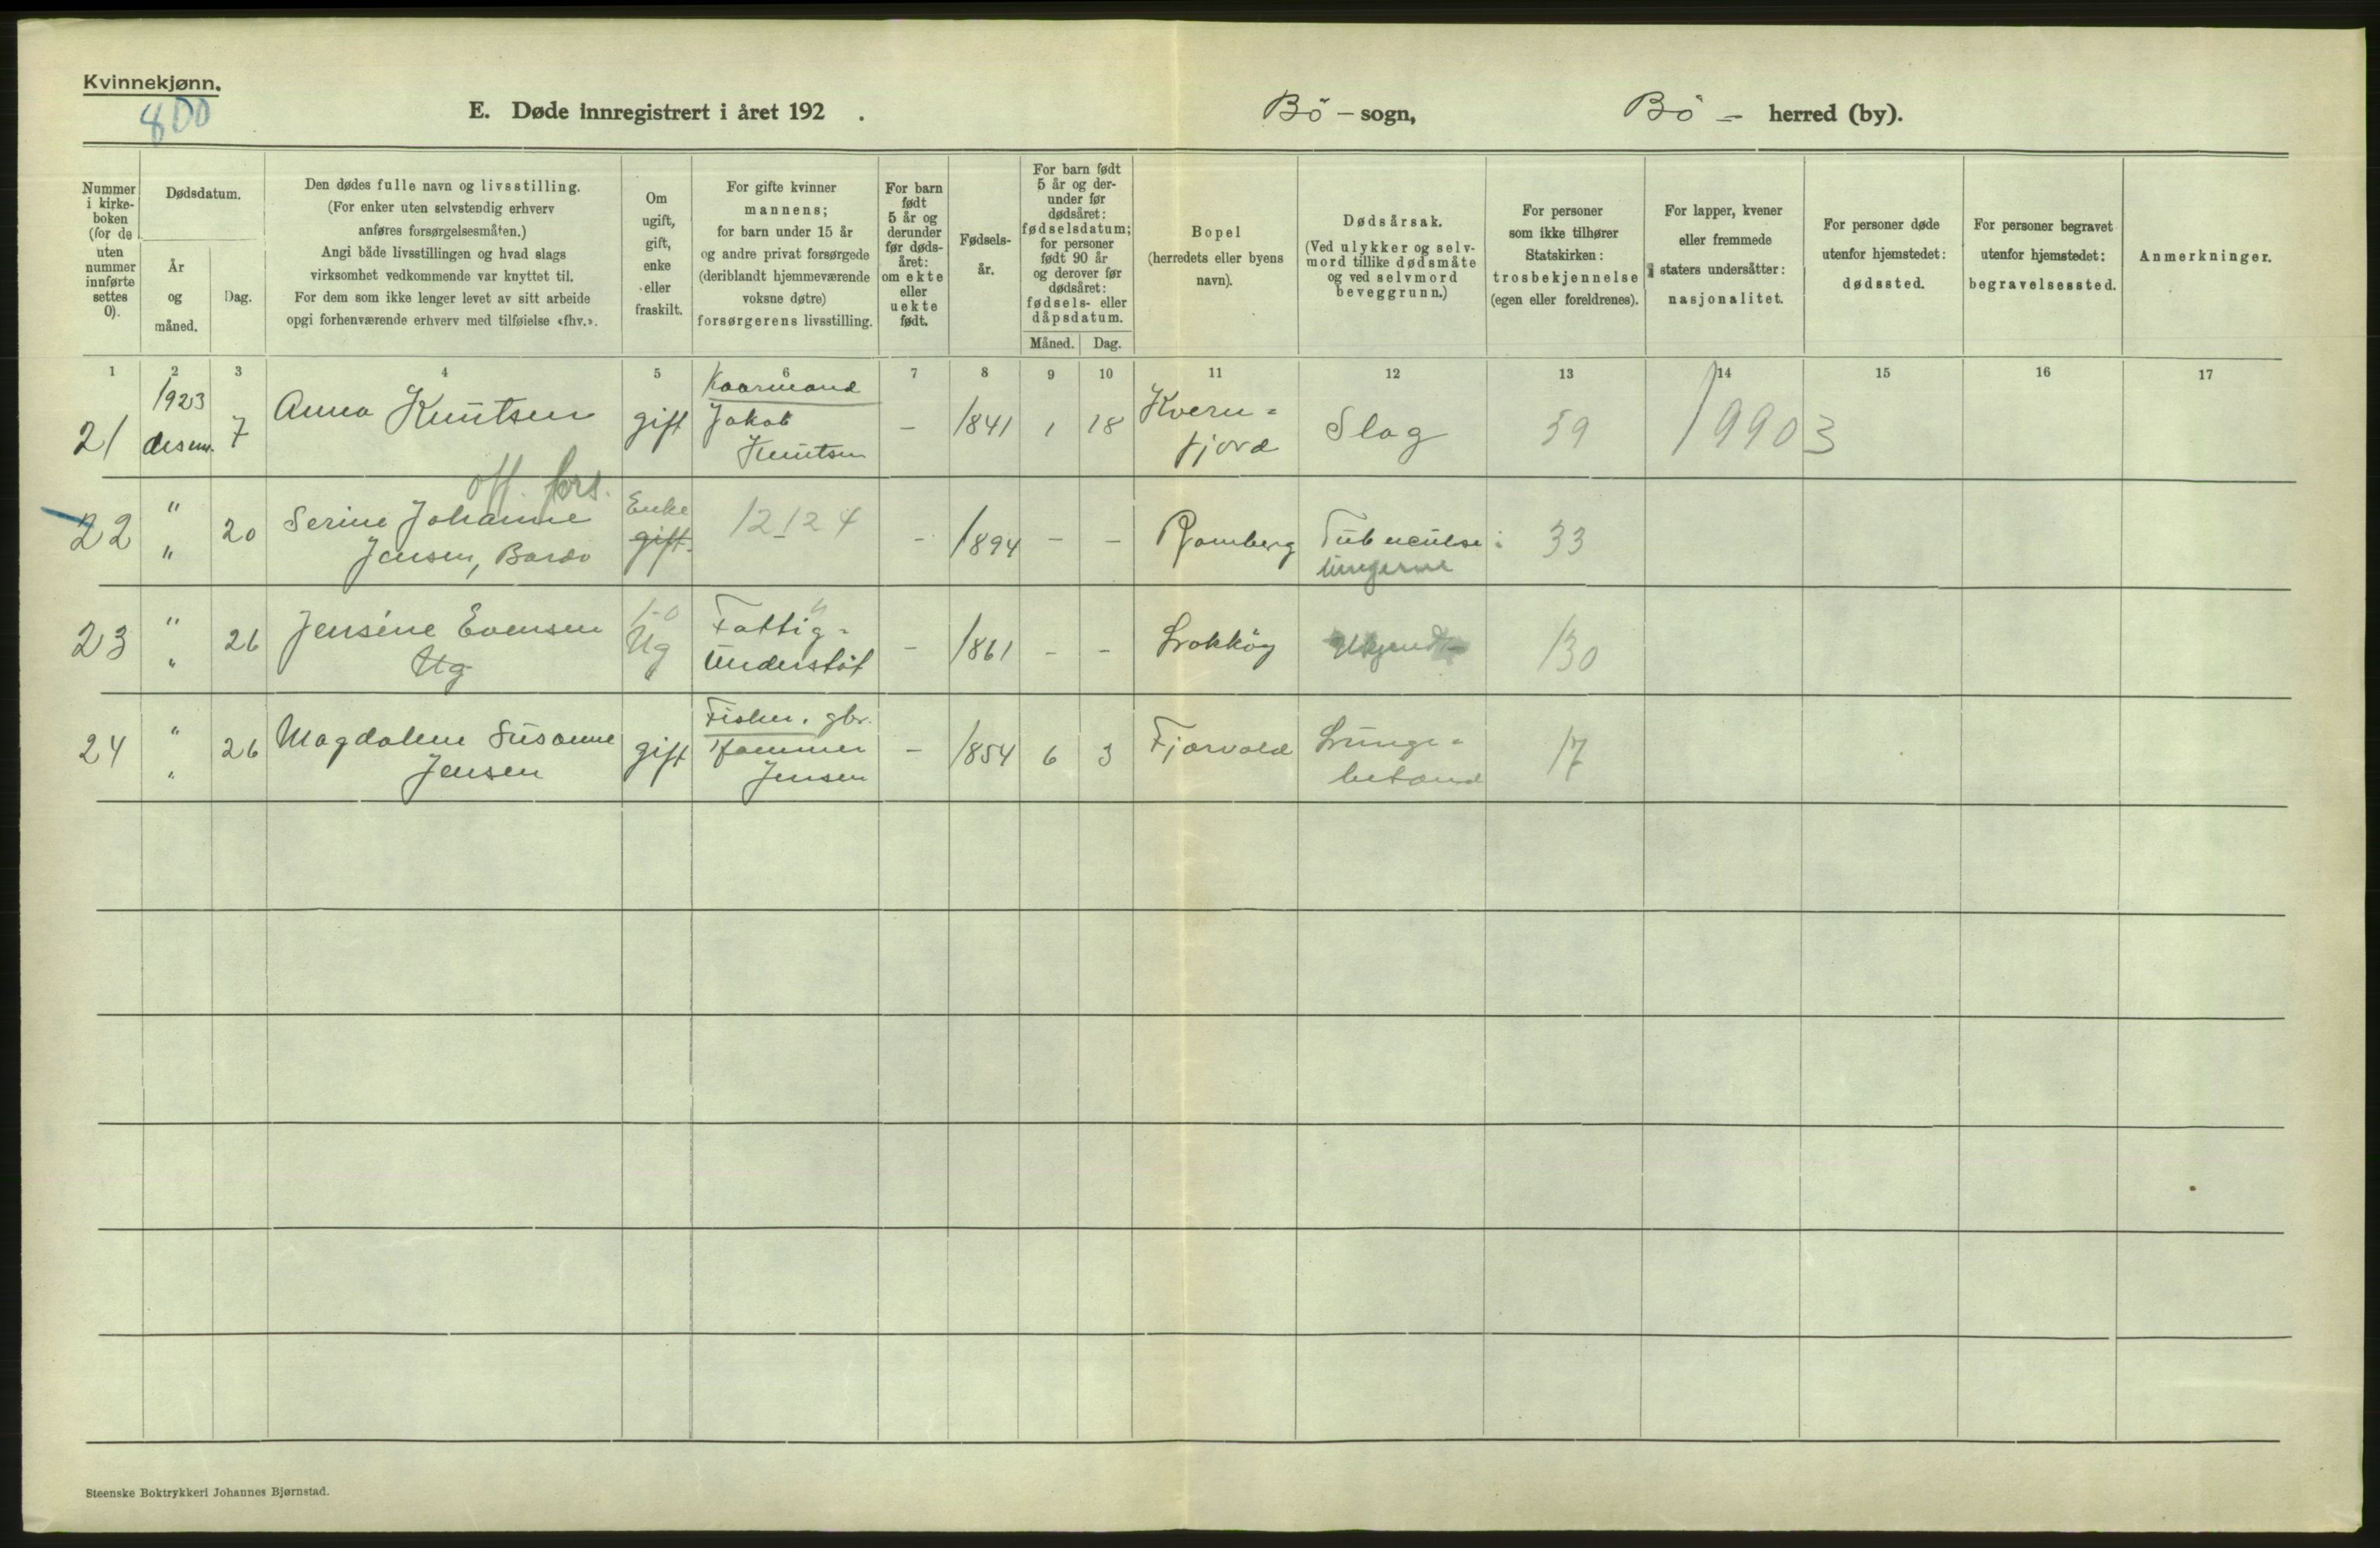 Kvinnekjønn.
800
E. Døde innregistrert i året 192 .
Bö - sogn,
Bö - herred (by).
Nummer
i kirke-
boken
(for de
uten
nummer
innførte
settes
0).
Dødsdatum.
År
og
måned.
Dag.
Den dødes fulle navn og livsstilling.
(For enker uten selvstendig erhverv
anføres forsørgelsesmåten.)
Angi både livsstillingen og hvad slags
virksomhet vedkommende var knyttet til.
For dem som ikke lenger levet av sitt arbeide
opgi forhenværende erhverv med tilføielse «fhv.».
Om
ugift,
gift,
enke
eller
fraskilt.
For gifte kvinner
mannens;
for barn under 15 år
og andre privat forsørgede
(deriblandt hjemmeværende
voksne døtre)
forsørgerens livsstilling.
For barn
født
5 år og
derunder
før døds-
året:
om ekte
eller
uekte
født.
Fødsels-
år.
For barn født
5 år og der-
under før
dødsåret:
fødselsdatum;
for personer
født 90 år
og derover før
dødsåret:
fødsels- eller
dåpsdatum.
Måned. Dag.
Bopel
(herredets eller byens
navn).
Dødsårsak.
(Ved ulykker og selv-
mord tillike dødsmåte
og ved selvmord
beveggrunn.)
For personer
som ikke tilhører
Statskirken:
trosbekjennelse
(egen eller foreldrenes).
For lapper, kvener
eller fremmede
staters undersåtter:
nasjonalitet.
For personer døde
utenfor hjemstedet:
dødssted.
For personer begravet
utenfor hjemstedet:
begravelsessted.
Anmerkninger.
1 2 3 4 5 6 7 8 9 10 11 12 13 14 15 16 17
1923 Kaarmand
21 desem. 7 Anna Knutsen gift Jakob - 1841 1 18 Kvern= Slag 59 19903
Knutsen fjord
off. fors.
22 " 20 Serine Johanne Enke 12 12 4 - 1894 - - Ramberg Tuberculse i 33
" Jensen, Barsv gift. lungerne
23 " 26 Jensine Evensen Ug Fattig= - 1861 - - Lokköy Ukjendt 130
" Ug understöt
Fisker, gbr.
24 " 26 Magdalene Susanne gift Hammer - 1854 6 3 Fjærvold Lunge= 17
" Jensen Jensen betænd
Steenske Boktrykkeri Johannes Bjørnstad.